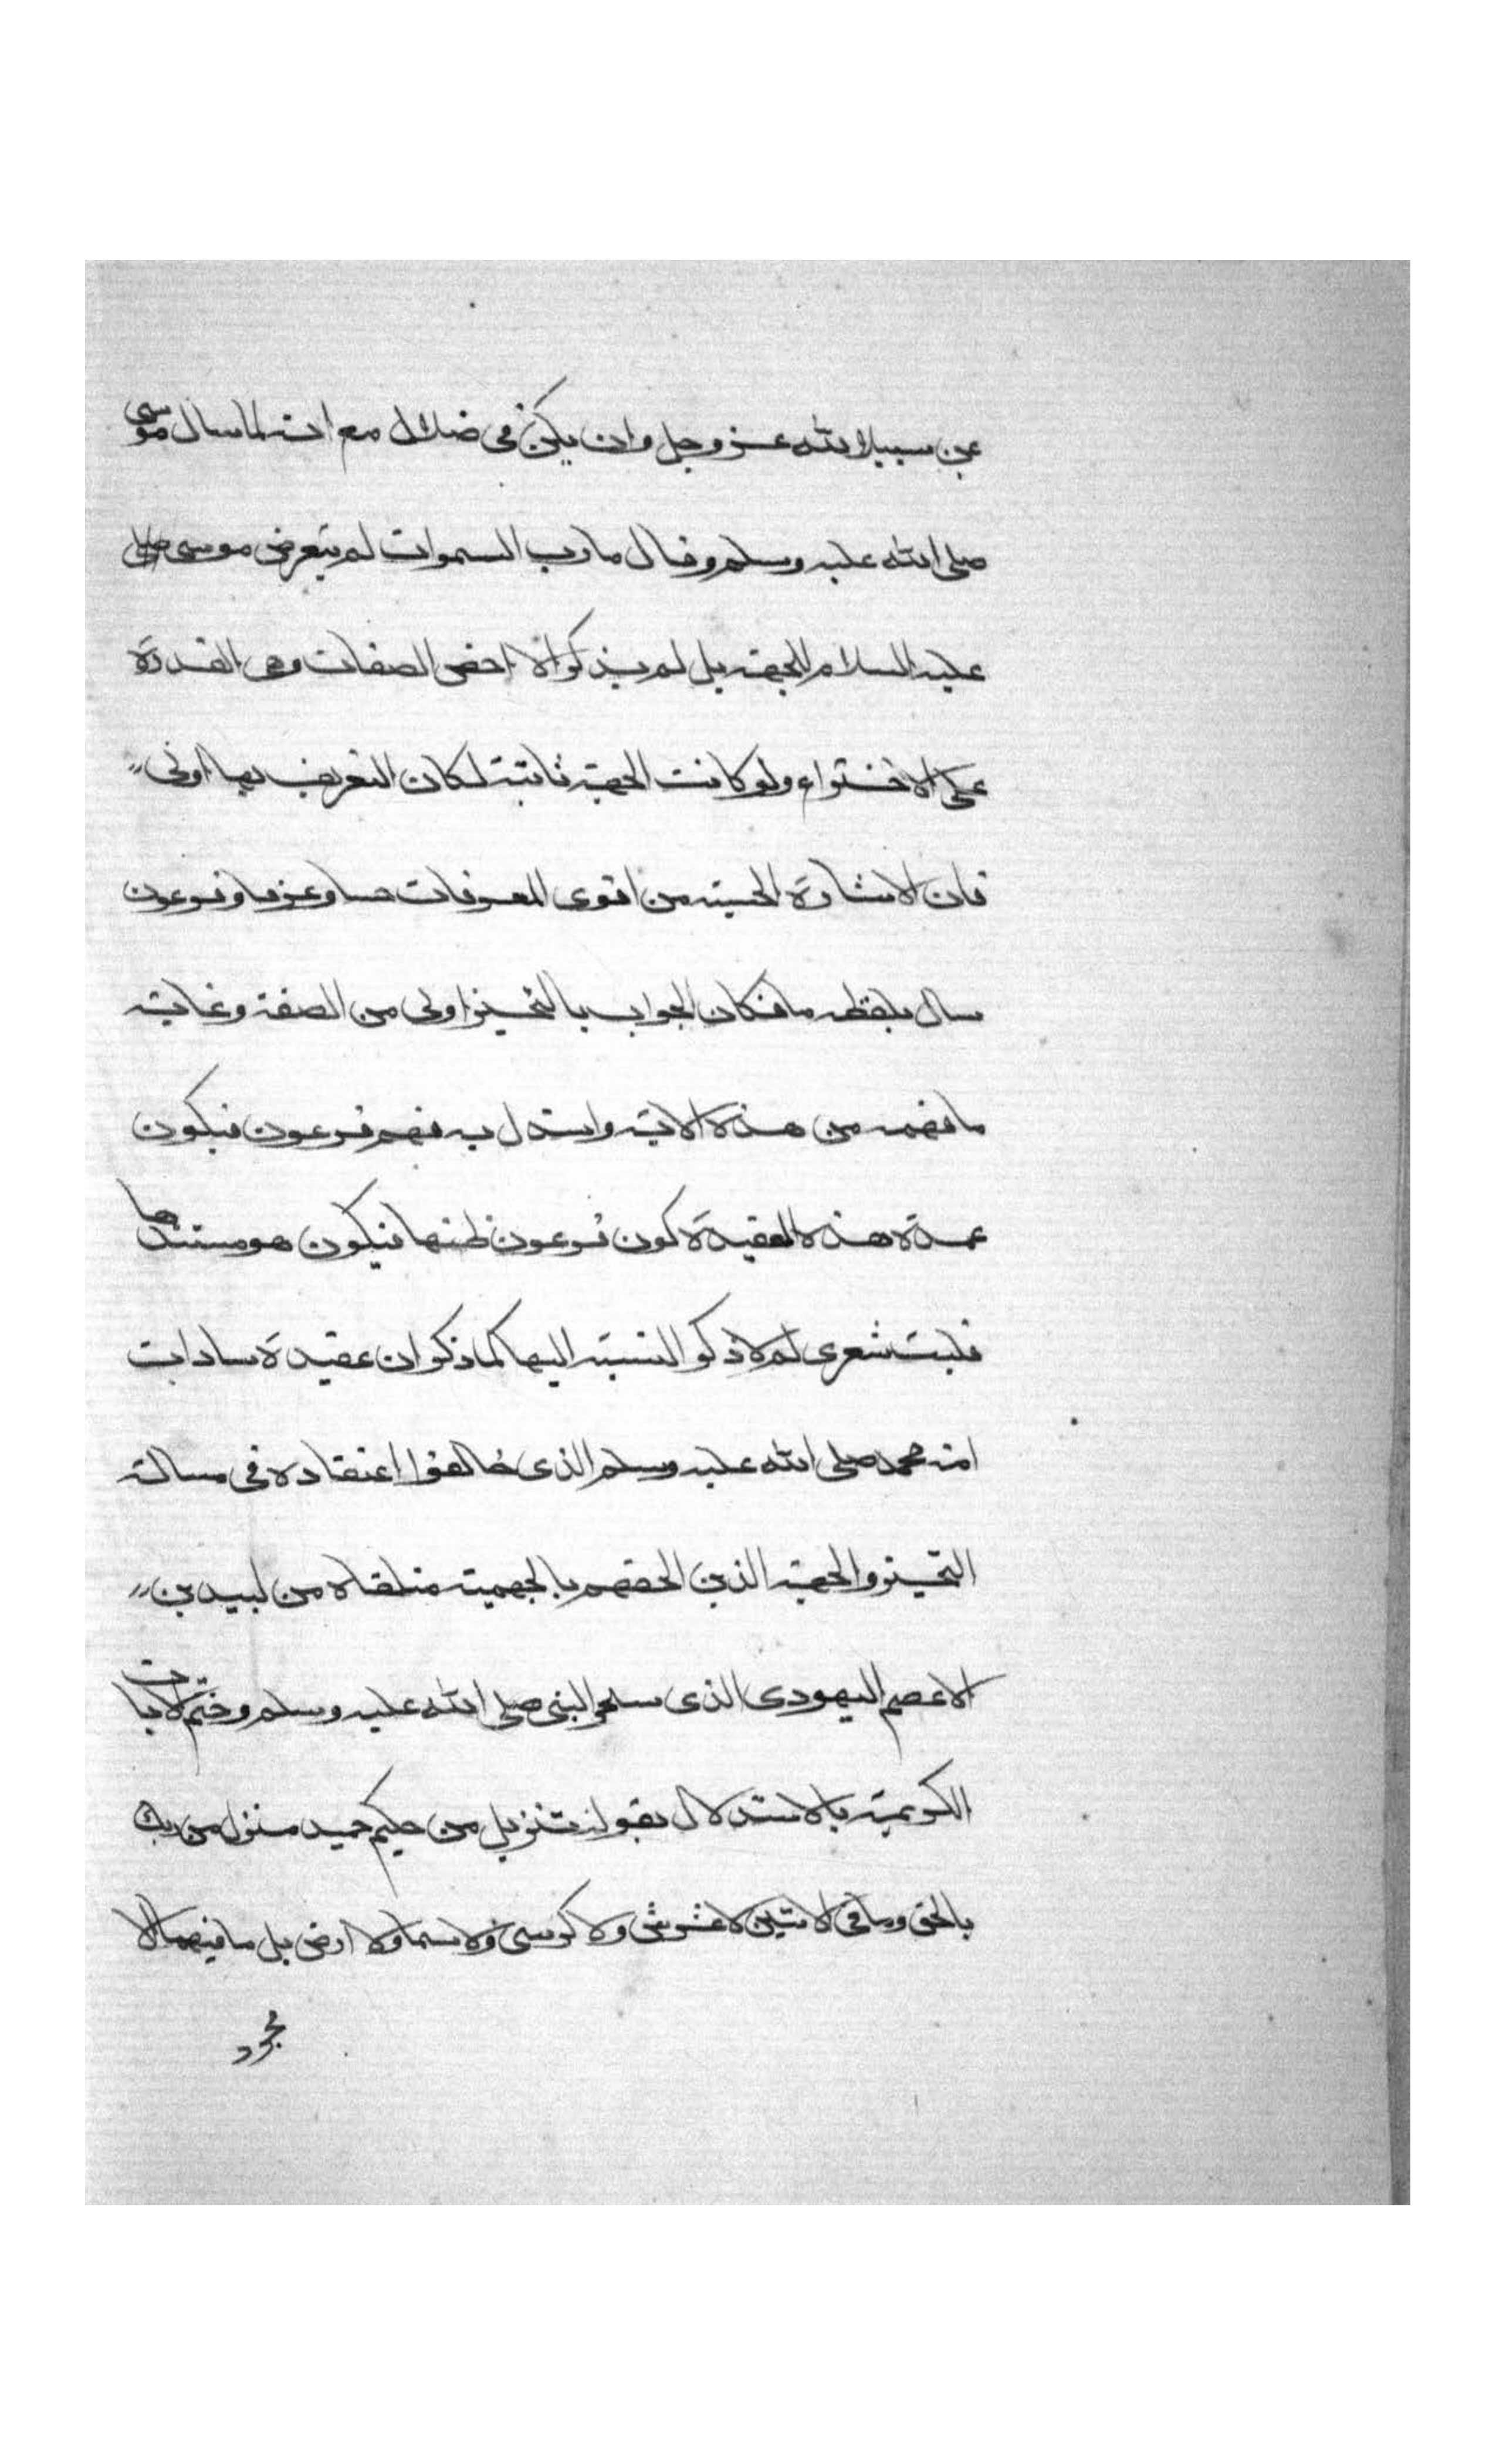 عن سبيل الله عز وجل وان يكن في ضلال مع انه لما سال موسى
صلى الله عليه وسلم وقال ما رب السموات لم يتعرض موسى
عليه السلام للجهة بل لم يذكر الا اخص الصفات وهي القدرة
على الاختراع ولو كانت الجهة ثابتة لكان التعريف بها اولى
فان الاشارة الحسية من اقوى المعرفات حسا وعرفا وفرعون
سال بلفظه ما فكان الجواب بالتحيز اولى من الصفة وغاية
ما فهمه من هذه الاية واستدل به فهم فرعون فيكون
عمدة هذه العقيدة كون فرعون ظنها فيكون هو مستندها
فليت شعري لم لا ذكر النسبة اليه كما ذكر ان عقيدة سادات
امة محمد صلى الله عليه وسلم الذي خالفوا اعتقاده في مسالة
التحيز والجهة الذين الحقهم بالجهمية متلقاه من لبيد بن
الاعصم اليهودي الذي سحر النبي صلى الله عليه وسلم وختم الايات
الكريمة بالاستدلال بقوله تنزيل من حكيم حميد منزل من ربك
بالحق وما في الايتين لا عرش ولا كرسي ولا سما ولا ارض بل ما فيهما الا
مجرد